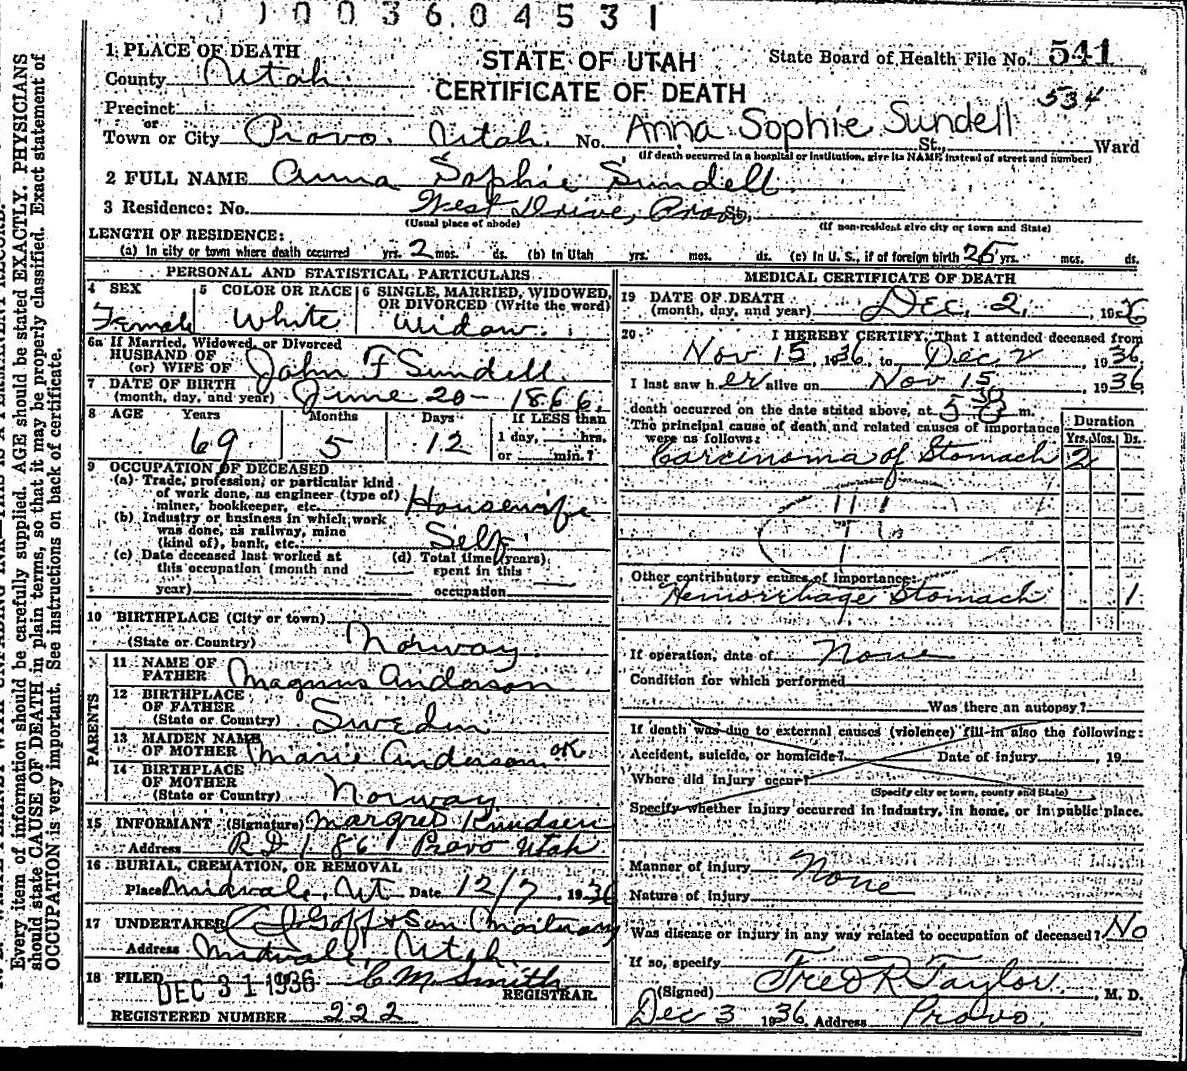 0036045 31
1 PLACE OF DEATH
STATE OF UTAH
State Board of Health File No. 541
County Utah
CERTIFICATE OF DEATH
534
Precinct
or
Town or City Provo Utah. No. Anna Sophie Sundell St., Ward
(If death occurred in a hospital or institution, give its NAME instead of street and number)
2 FULL NAME Anna Sophie Sundell
3 Residence: No. West Drive, Provo St.,
(Usual place of abode) (If non-resident give city or town and State)
LENGTH OF RESIDENCE:
(a) In city or town where death occurred yrs. 2 mos. ds. (b) In Utah yrs. mos. ds. (c) In U. S., if of foreign birth 25 yrs. mos. ds.
PERSONAL AND STATISTICAL PARTICULARS
4 SEX
Female
5 COLOR OR RACE
White
6 SINGLE, MARRIED, WIDOWED, OR DIVORCED (Write the word)
Widow
6a If Married, Widowed, or Divorced
HUSBAND OF
(or) WIFE OF John F Sundell
7 DATE OF BIRTH
(month, day, and year) June 20 - 1866
8 AGE Years Months Days If LESS than
69 5 12 1 day, hrs.
or min.?
9 OCCUPATION OF DECEASED
(a) Trade, profession, or particular kind
of work done, as engineer (type of)
miner, bookkeeper, etc. Housewife
(b) Industry or business in which work
was done, as railway, mine
(kind of), bank, etc. Self
(c) Date deceased last worked at (d) Total time (years)
this occupation (month and spent in this
year) occupation
10 BIRTHPLACE (City or town)
(State or Country) Norway
PARENTS
11 NAME OF
FATHER Magnus Anderson
12 BIRTHPLACE
OF FATHER
(State or Country) Sweden
13 MAIDEN NAME
OF MOTHER Marie Anderson OK
14 BIRTHPLACE
OF MOTHER
(State or Country) Norway
15 INFORMANT (Signature) Margret Knudsen
Address R.D 1 86 Provo Utah
16 BURIAL, CREMATION, OR REMOVAL
Place Midvale, Ut Date 12/7 1936
17 UNDERTAKER Goff & Son Mortuary
Address Midvale, Utah
18 FILED DEC 31 1936 C. M. Smith
REGISTRAR.
REGISTERED NUMBER 222
MEDICAL CERTIFICATE OF DEATH
19 DATE OF DEATH
(month, day, and year) Dec. 2, 1936
20 I HEREBY CERTIFY, That I attended deceased from
Nov 15, 1936, to Dec 2, 1936
I last saw her alive on Nov 15, 1936
death occurred on the date stated above, at 5 30 m.
The principal cause of death and related causes of importance
were as follows:
Duration
Yrs. Mos. Ds.
Carcinoma of Stomach 2
Other contributory causes of importance:
Hemorrhage Stomach 1
If operation, date of None
Condition for which performed
Was there an autopsy?
If death was due to external causes (violence) fill in also the following:
Accident, suicide, or homicide? Date of injury , 19
Where did injury occur?
(Specify city or town, county and State)
Specify whether injury occurred in industry, in home, or in public place.
Manner of injury None
Nature of injury
Was disease or injury in any way related to occupation of deceased? No
If so, specify
(Signed) Fred R Taylor, M. D.
Dec 3 1936 Address Provo.
Every item of information should be carefully supplied. AGE should be stated EXACTLY. PHYSICIANS
should state CAUSE OF DEATH in plain terms, so that it may be properly classified. Exact statement of
OCCUPATION is very important. See instructions on back of certificate.